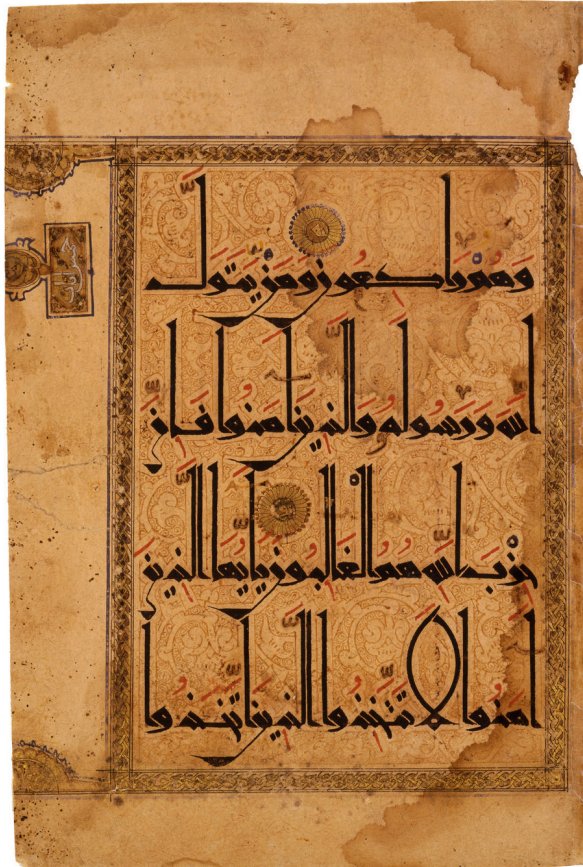 وَهُمْ رَاكِعُونَ وَمَنْ يَتَوَلَّ
اللَّهَ وَرَسُولَهُ وَالَّذِينَ آمَنُوا فَإِنَّ
حِزْبَ اللَّهِ هُمُ الْغَالِبُونَ يَا يُّهَا الَّذِينَ
آمَنُوا لَا تَتَّخِذُوا الَّذِينَ اتَّخَذُوا